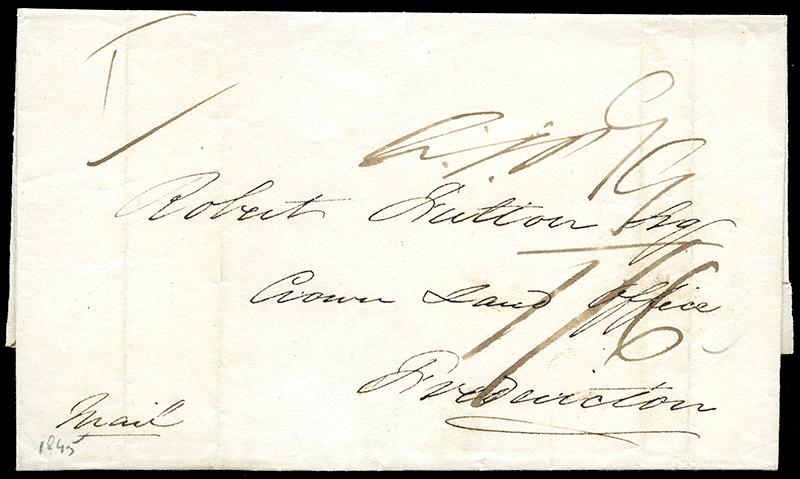 Robert Fulton Esq
Crown Land Office
Fredericton
1/6
Mail
1845